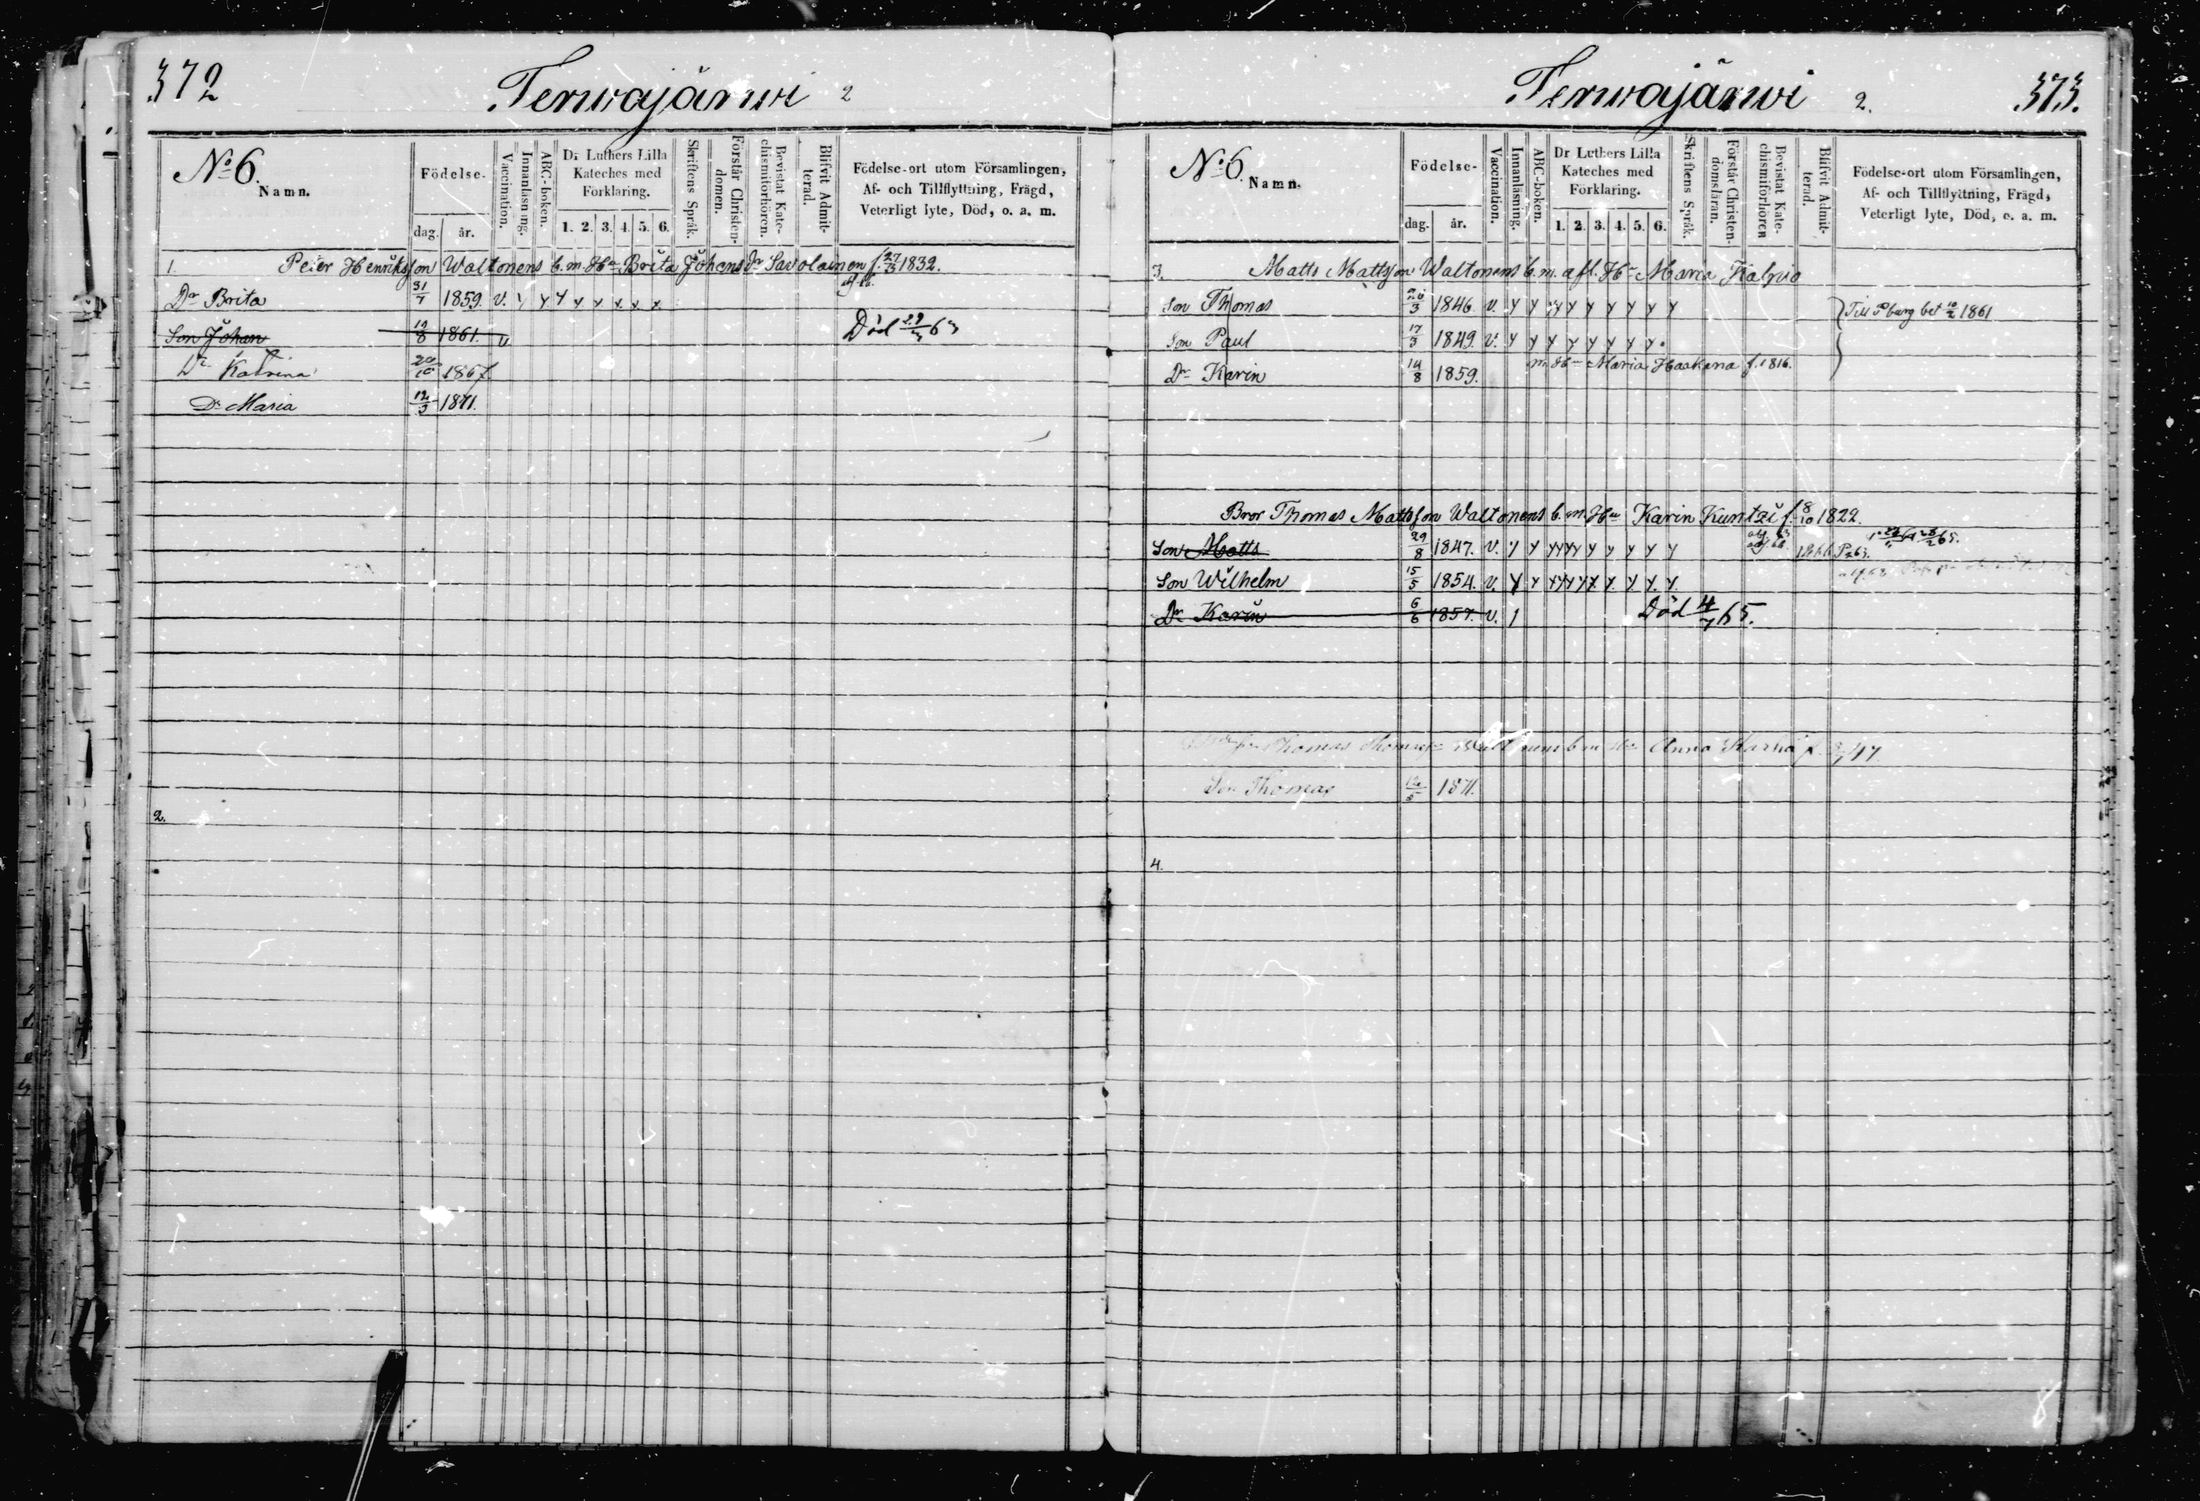 372
Terwajärwi 2
No 6.
Namn.
Födelse-
dag. år.
Vaccination.
Innanläsning.
ABC-boken.
Dr Luthers Lilla Kateches med Förklaring.
1. 2. 3. 4. 5. 6.
Skriftens Språk.
Förstår Christendomen.
Bevistat Katechismiförhören.
Blifvit Admitterad.
Födelse-ort utom Församlingen, Af- och Tillflyttning, Frägd, Veterligt lyte, Död, o. a. m.
1. Peter Henriksson Waltonens b. m. Hu Brita Johans Dr Savolainen f. 27/3 1832.
Dr Brita 31/7 1859. v. y y y y y x x x x
Son Johan 12/8 1861. v Död 29/3 63
Dr Katrina 20/10 1867.
Dr Maria 12/3 1871.
2.
Terwajärwi 2.
373.
No 6.
Namn.
Födelse-
dag. år.
Vaccination.
Innanläsning.
ABC-boken.
Dr Luthers Lilla Kateches med Förklaring.
1. 2. 3. 4. 5. 6.
Skriftens Språk.
Förstår Christendomsläran.
Bevistat Katechismiförhören
Blifvit Admitterad.
Födelse-ort utom Församlingen, Af- och Tillflyttning, Frägd, Veterligt lyte, Död, o. a. m.
3. Matts Mattsson Waltonens b. m. afl. Hu Maria Kalpio
Son Thomas 20/3 1846. v. y y y y y y y y y Till Pburg bet 10/2 1861
Son Paul 17/3 1849. v. y y y y y y y y.
Dr Karin 14/8 1859. m. Hu Maria Haakana f. 1816.
Bror Thomas Mattsson Waltonens b. m. Hu Karin Kuntzi f. 8/10 1822.
Son Matts 29/8 1847. v. y y yyyy y y y y y
Son Wilhelm 15/5 1854. v. y y yyyyy y. y. y. y.
Dr Karin 6/6 1857. v. 1 Död 4/7 65.
Thomas Anna Karhu f. 47.
Son Thomas 12/5 1871.
4.